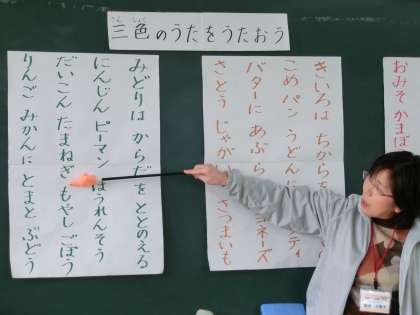 三色のうたをうたおう
さん しょく
みどりは からだを ととのえる
にんじん ピーマン ほうれんそう
だいこん たまねぎ もやし ごぼう
りんご みかんに とまと ぶどう
きいろは ちからを
こめ パン うどんに
バターに あぶら
さとう じゃが
ティ
ヨネーズ
さつまいも
おみそ かまぼ